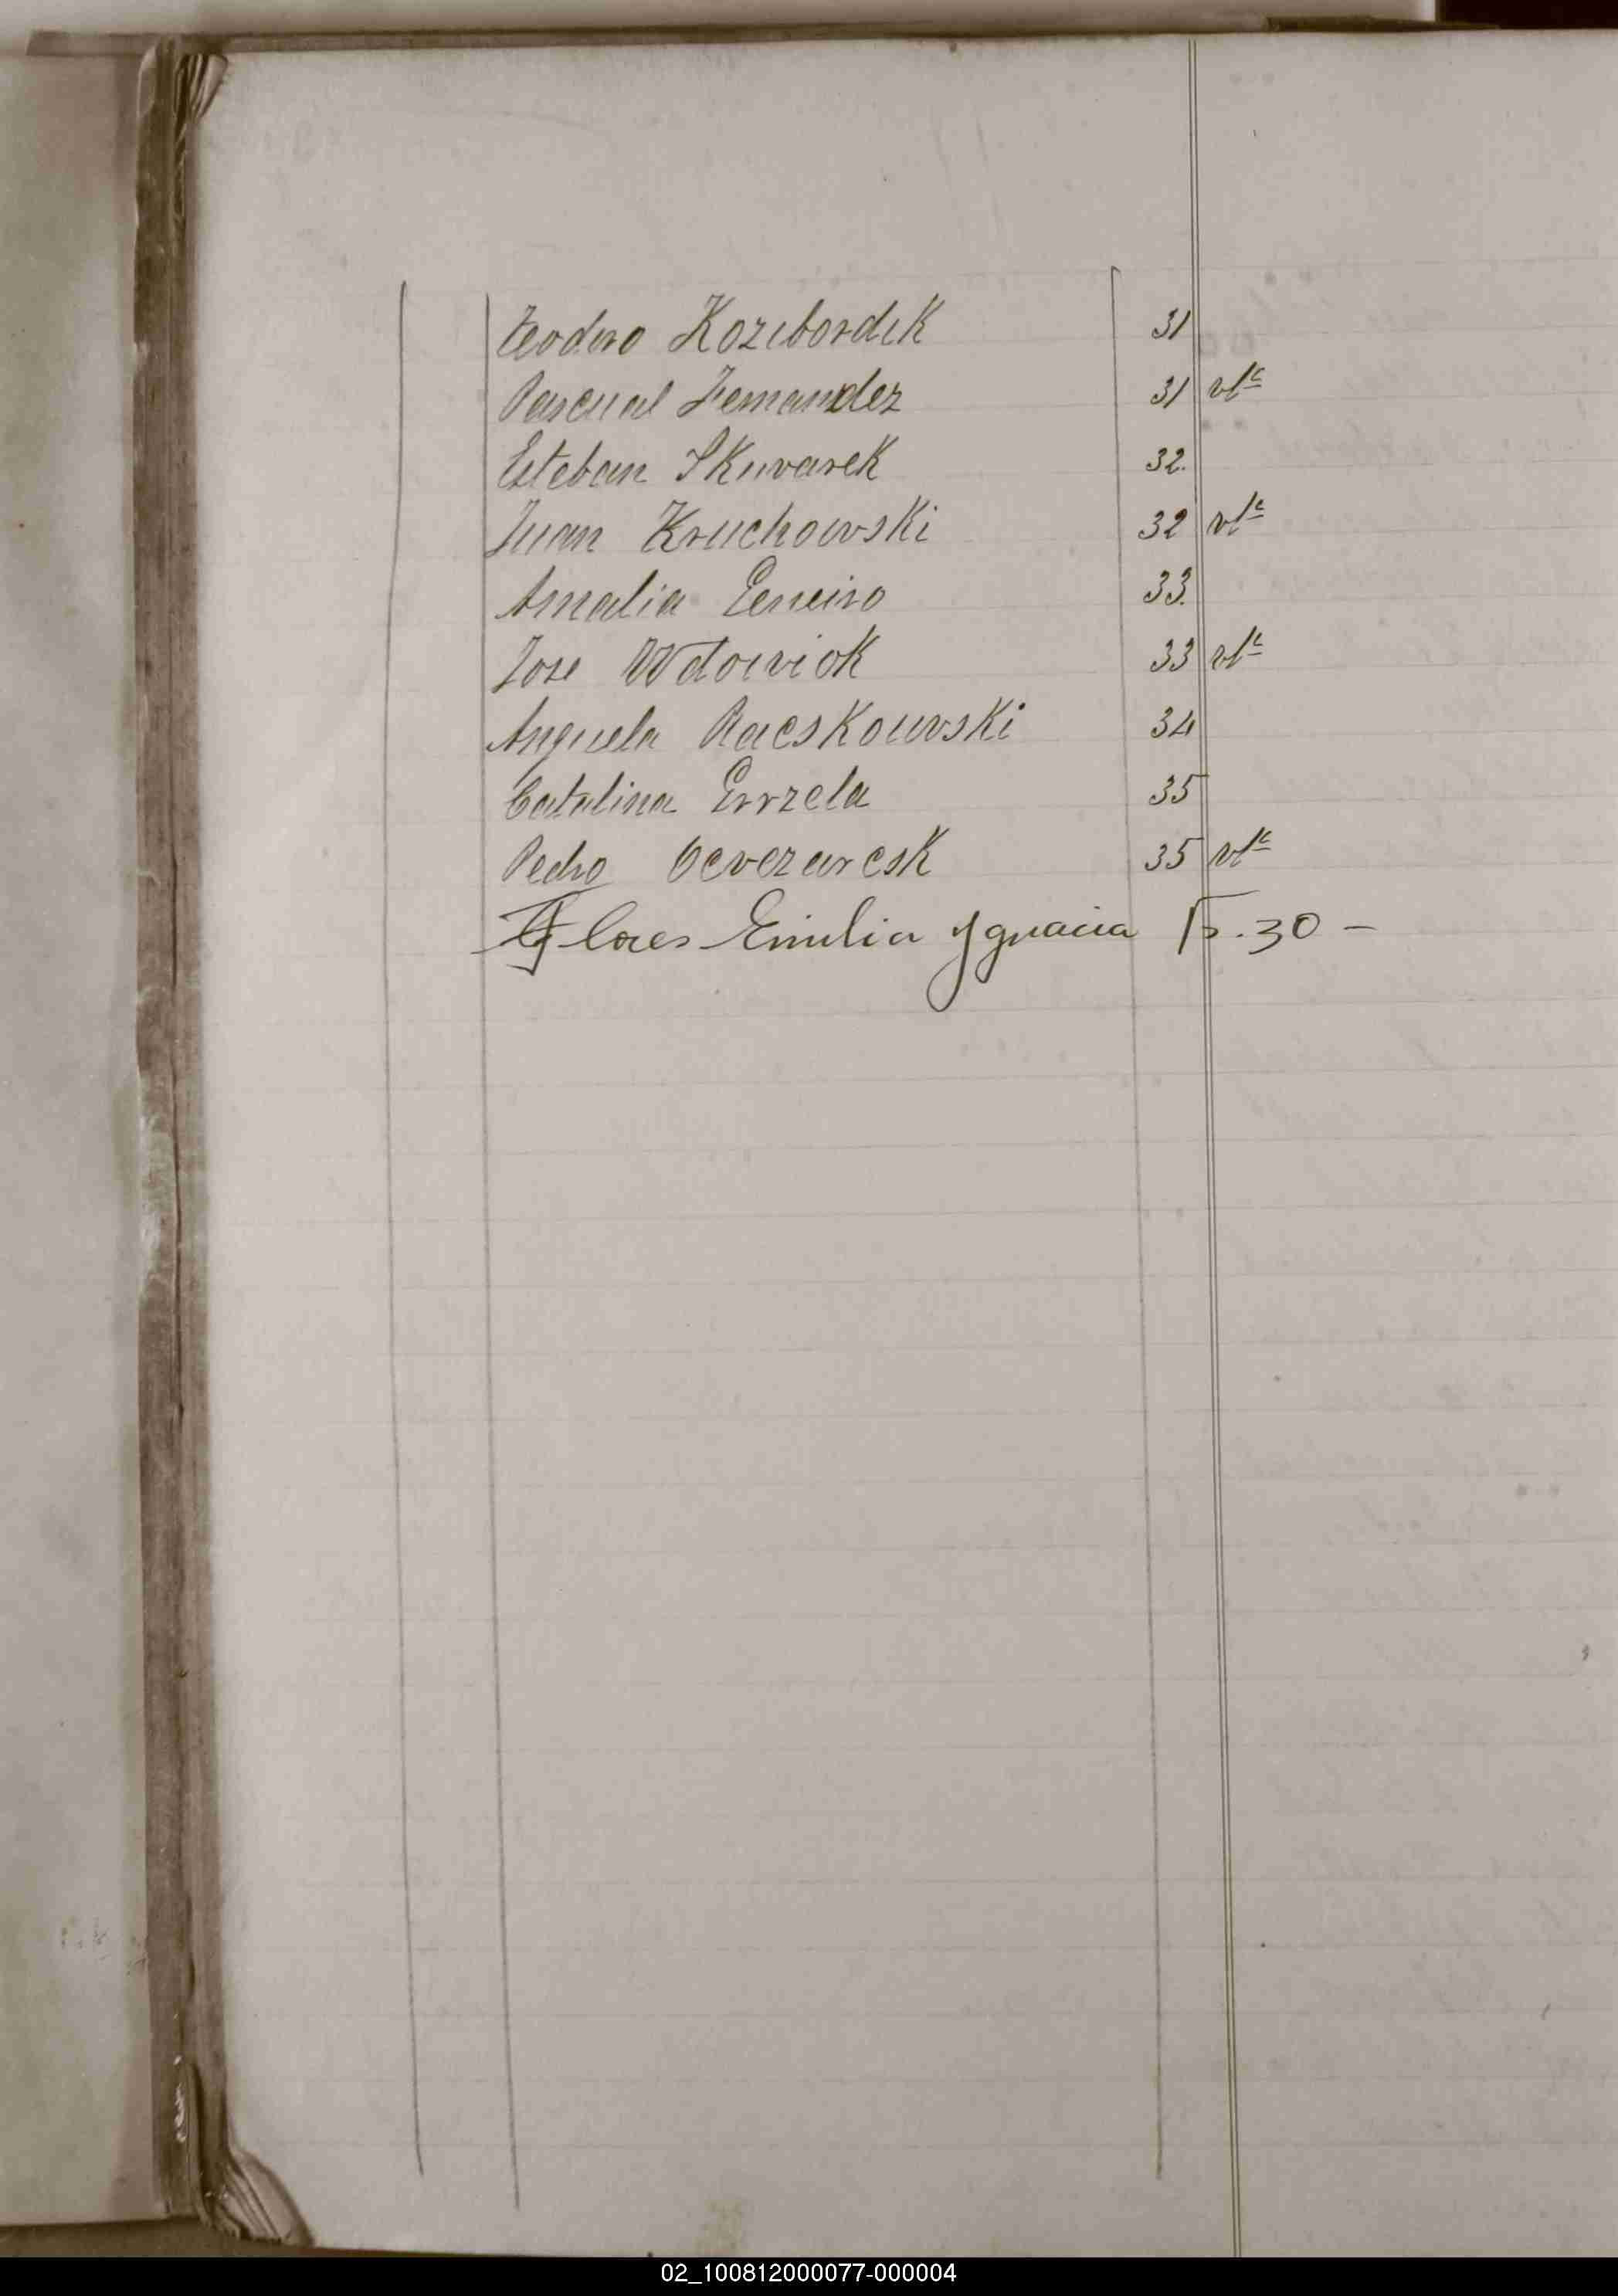 Teodoro Kozibordik 31
Pascual Fernandez 31 vta
Esteban Skuvarek 32.
Juan Kruchowski 32 vta
Amalia 33.
Jose Wdowiok 33 vta
Anguela Racskouvski 34
Catalina Errzela 35
Pedro Ocvezarcsk 35 vta
Flores Emilia Ygnacia Fs. 30 -
02_100812000077-000004